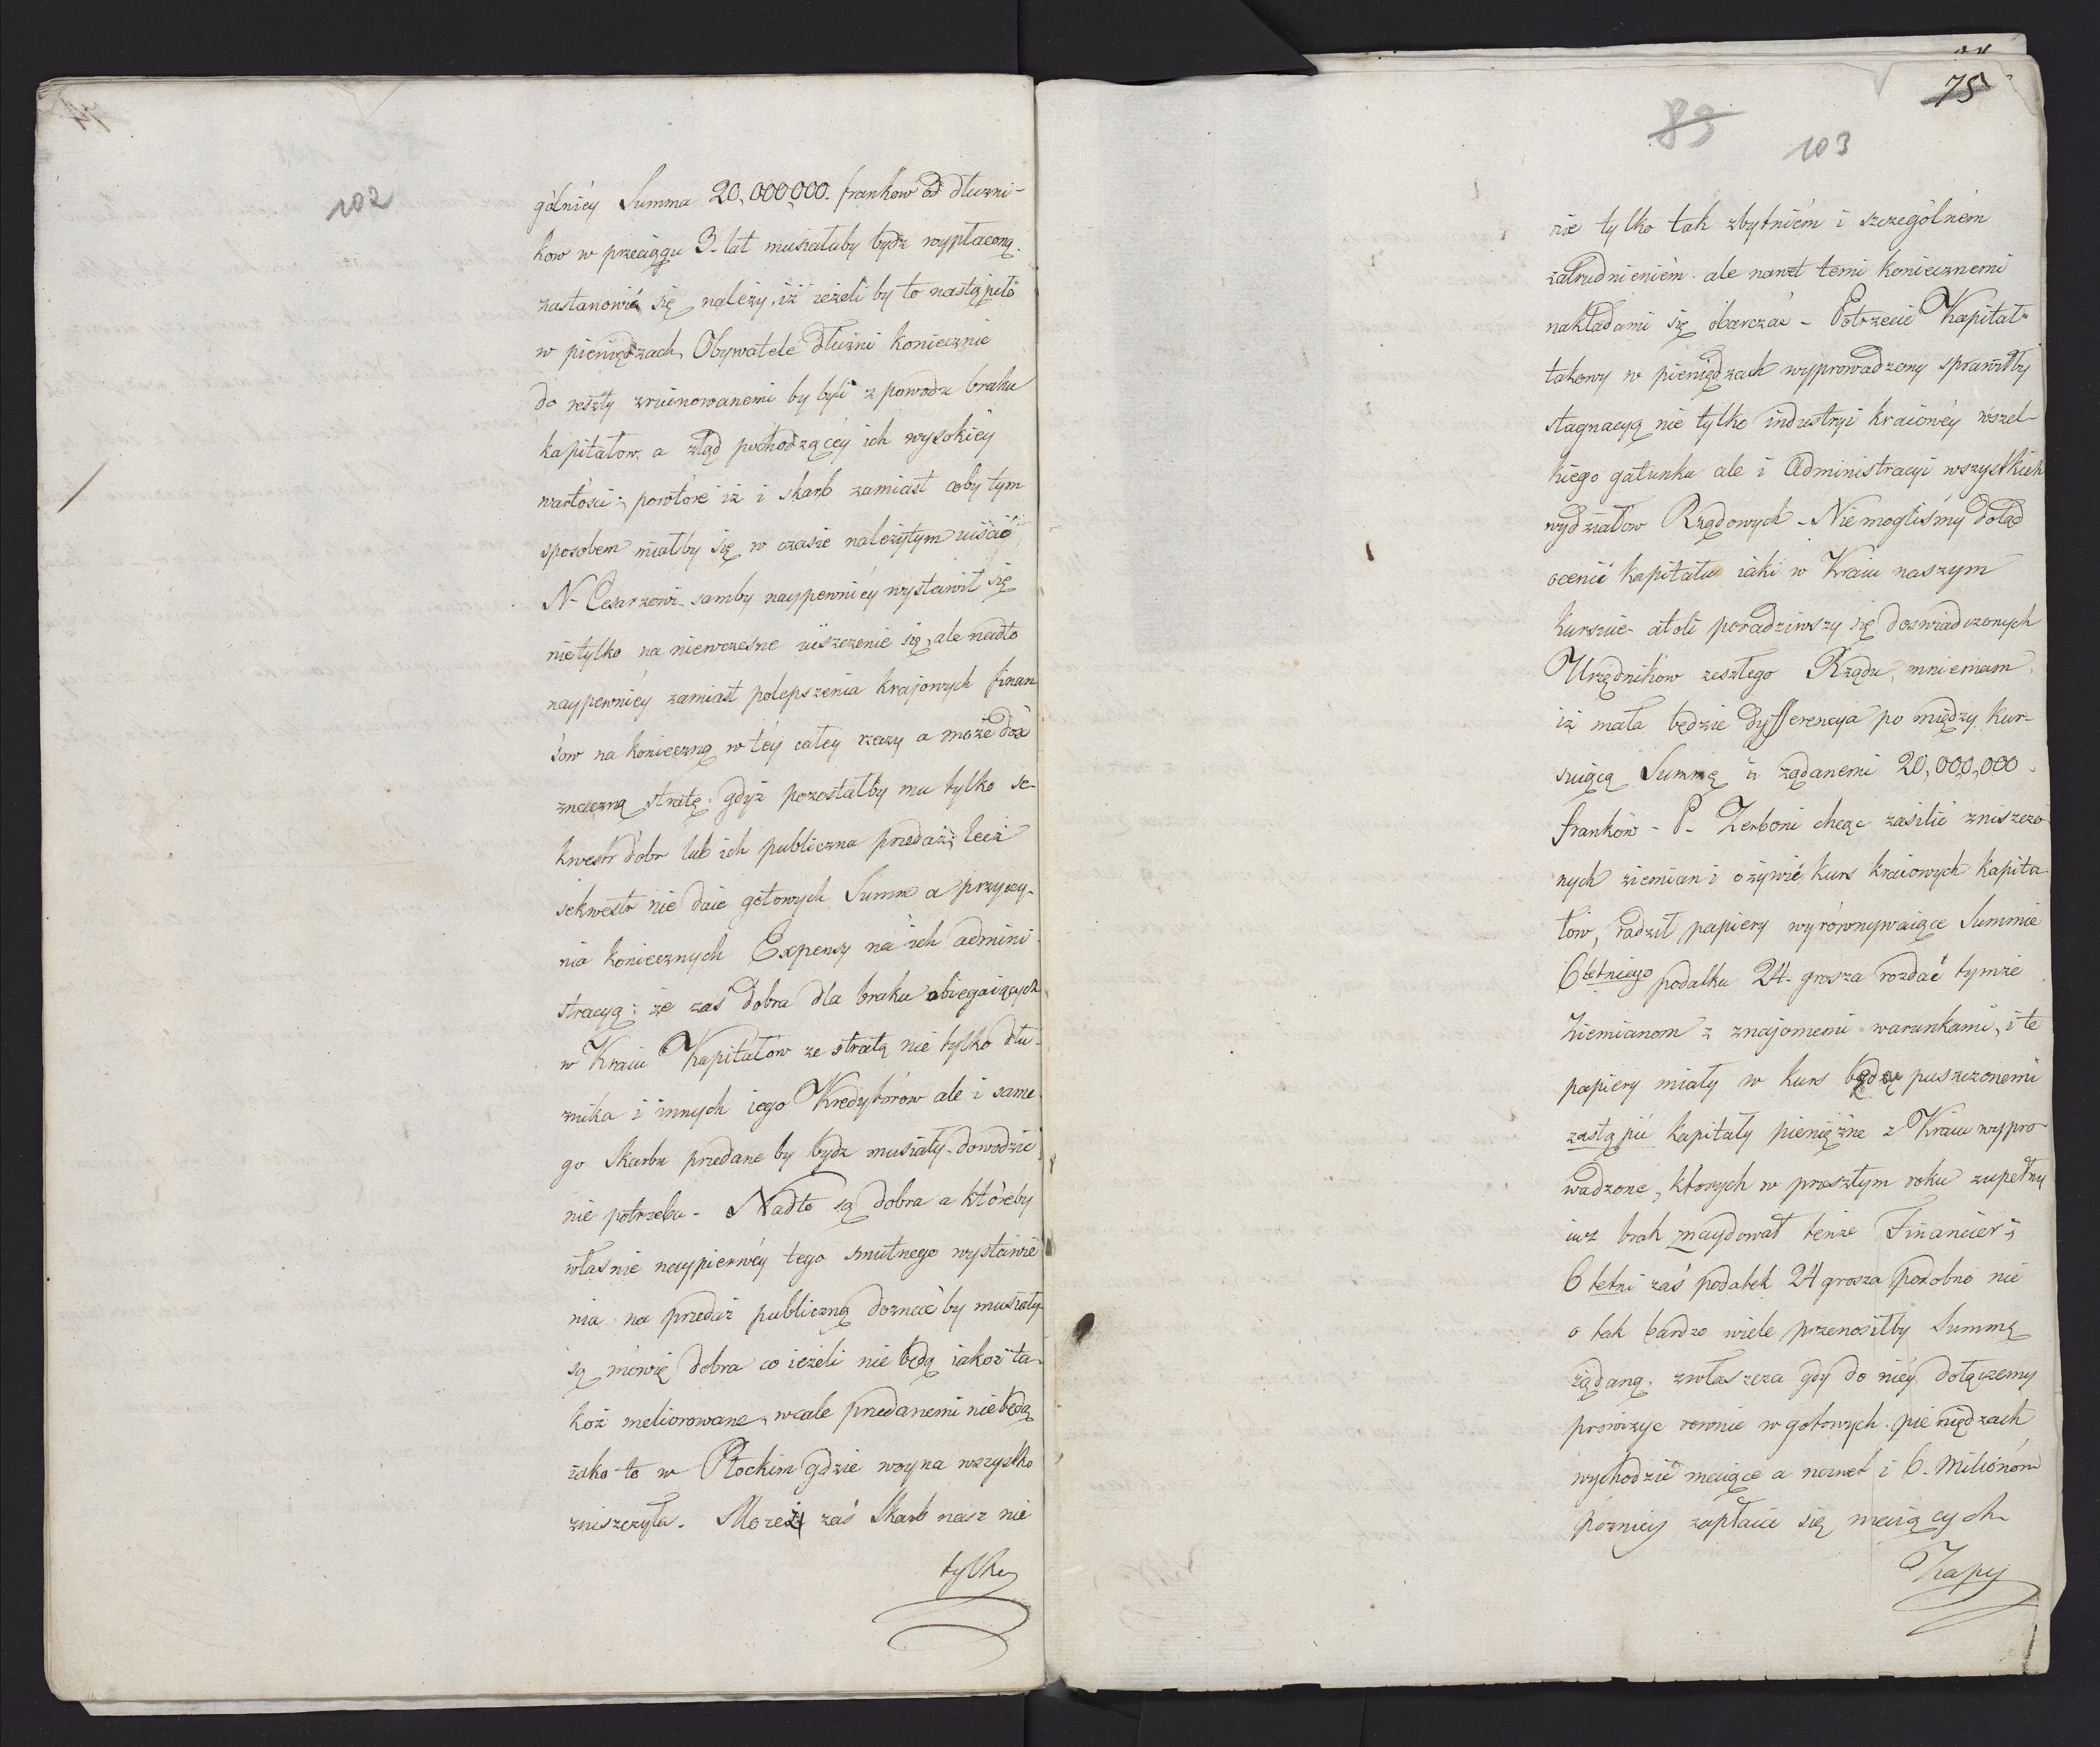 102
gólniéy Summa 20,000,000. franków od dłużni-
ków w przeciągu 3. lat musiałaby bydz wypłaconą.
zastanowić się należy, iż ieżeli by to nastąpiło
w pieniędzach, Obywatele dłużni koniecznie
do reszty zruinowanemi by byli z powodu braku
kapitałow, a ztąd pochodzącéy ich wysokiey
wartości; powtóre iż i skarb zamiast coby tym
sposobem miałby się w czasie należytym uiścić
N. Cesarzowi, samby naypewniéy wystawił się
nietylko na niewczesne uiszczenie się, ale nadto
naypewniéy zamiast polepszenia krajowych finan
sow na konieczną w téy całey rzeczy a może dość
znaczną stratę, gdyż pozostałby mu tylko se-
kwestr dobr lub ich publiczna przedaż; lecz
sekwestr nie daie gotowych Summ a przyczy-
nia koniecznych Expensy na ich admini
stracyą; że zaś dobra dla braku obiegaiących
w Kraiu Kapitałow ze stratą nie tylko dłu-
żnika i innych iego Kredytorów ale i same
go Skarbu przedane by bydz musiały, dowodzić
nie potrzeba. Nadto są dobra a któreby
własnie naypierwéy tego smutnego wystawie
nia na przedaż publiczną doznać by musiały
są mówię dobra co ieżeli nie będą iakoż ta-
koż meliorowane, wcale przedanemi nie będą
iako to w Płockim gdzie woyna wszystko
zniszczyła. Może zaś Skarb nasz nie
tylko
75
89
103
nie tylko tak zbytniém i szczególném
zatrudnieniém ale nawet temi koniecznemi
nakładami się obarczać - Potrzecie Kapitał
takowy w pieniędzach wyprowadzony sprawiłby
stagnacyą nie tylko industryi kraiowéy wszel-
kiego gatunku ale i Administracyi wszystkich
wydziałow Rządowych - Nie mogliśmy dotąd
ocenić kapitału iaki w Kraiu naszym
kursuie atoli poradziwszy się doswiadczonych
Urzędnikow zeszłego Rządu, mniemam,
iż mała będzie dyfferencya po między kur-
suiącą Summą a żądanemi 20,000,000.
franków - P. Zerboni chcąc zasilić zniszczo
nych ziemian i ożywić kurs kraiowych kapita
łów, radził papiery wyrównywaiące Summie
6letniego podatku 24. grosza rozdać tymże
Ziemianom z znajomemi warunkami, i te
papiery miały w kurs będąc puszczonemi
zastąpić kapitały pieniężne z Kraiu wypro
wadzone, ktorych w przeszłym roku zupełny
iuż brak znaydował tenże Financier;
6 letni zaś podatek 24 grosza podobno nie
o tak bardzo wiele przenosiłby Summę
żądaną, zwłaszcza gdy do niéy dołączemy
prowizye rownie w gotowych pieniędzach
wychodzić maiące a nawet i 6. Milionów
pozniey zapłacić się maiących
Zapy